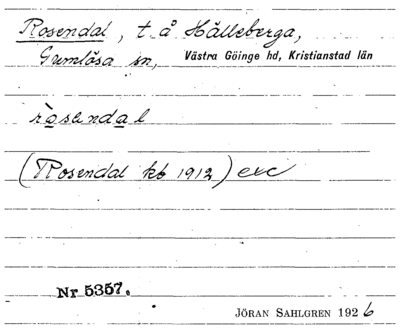 Rosendal, t. å Hålleberga,
Gumlösa sn, Västra Göinge hd, Kristianstad län
rosendal
(Rosendal kb 1912) exc
Nr 5357.
JÖRAN SAHLGREN 1926